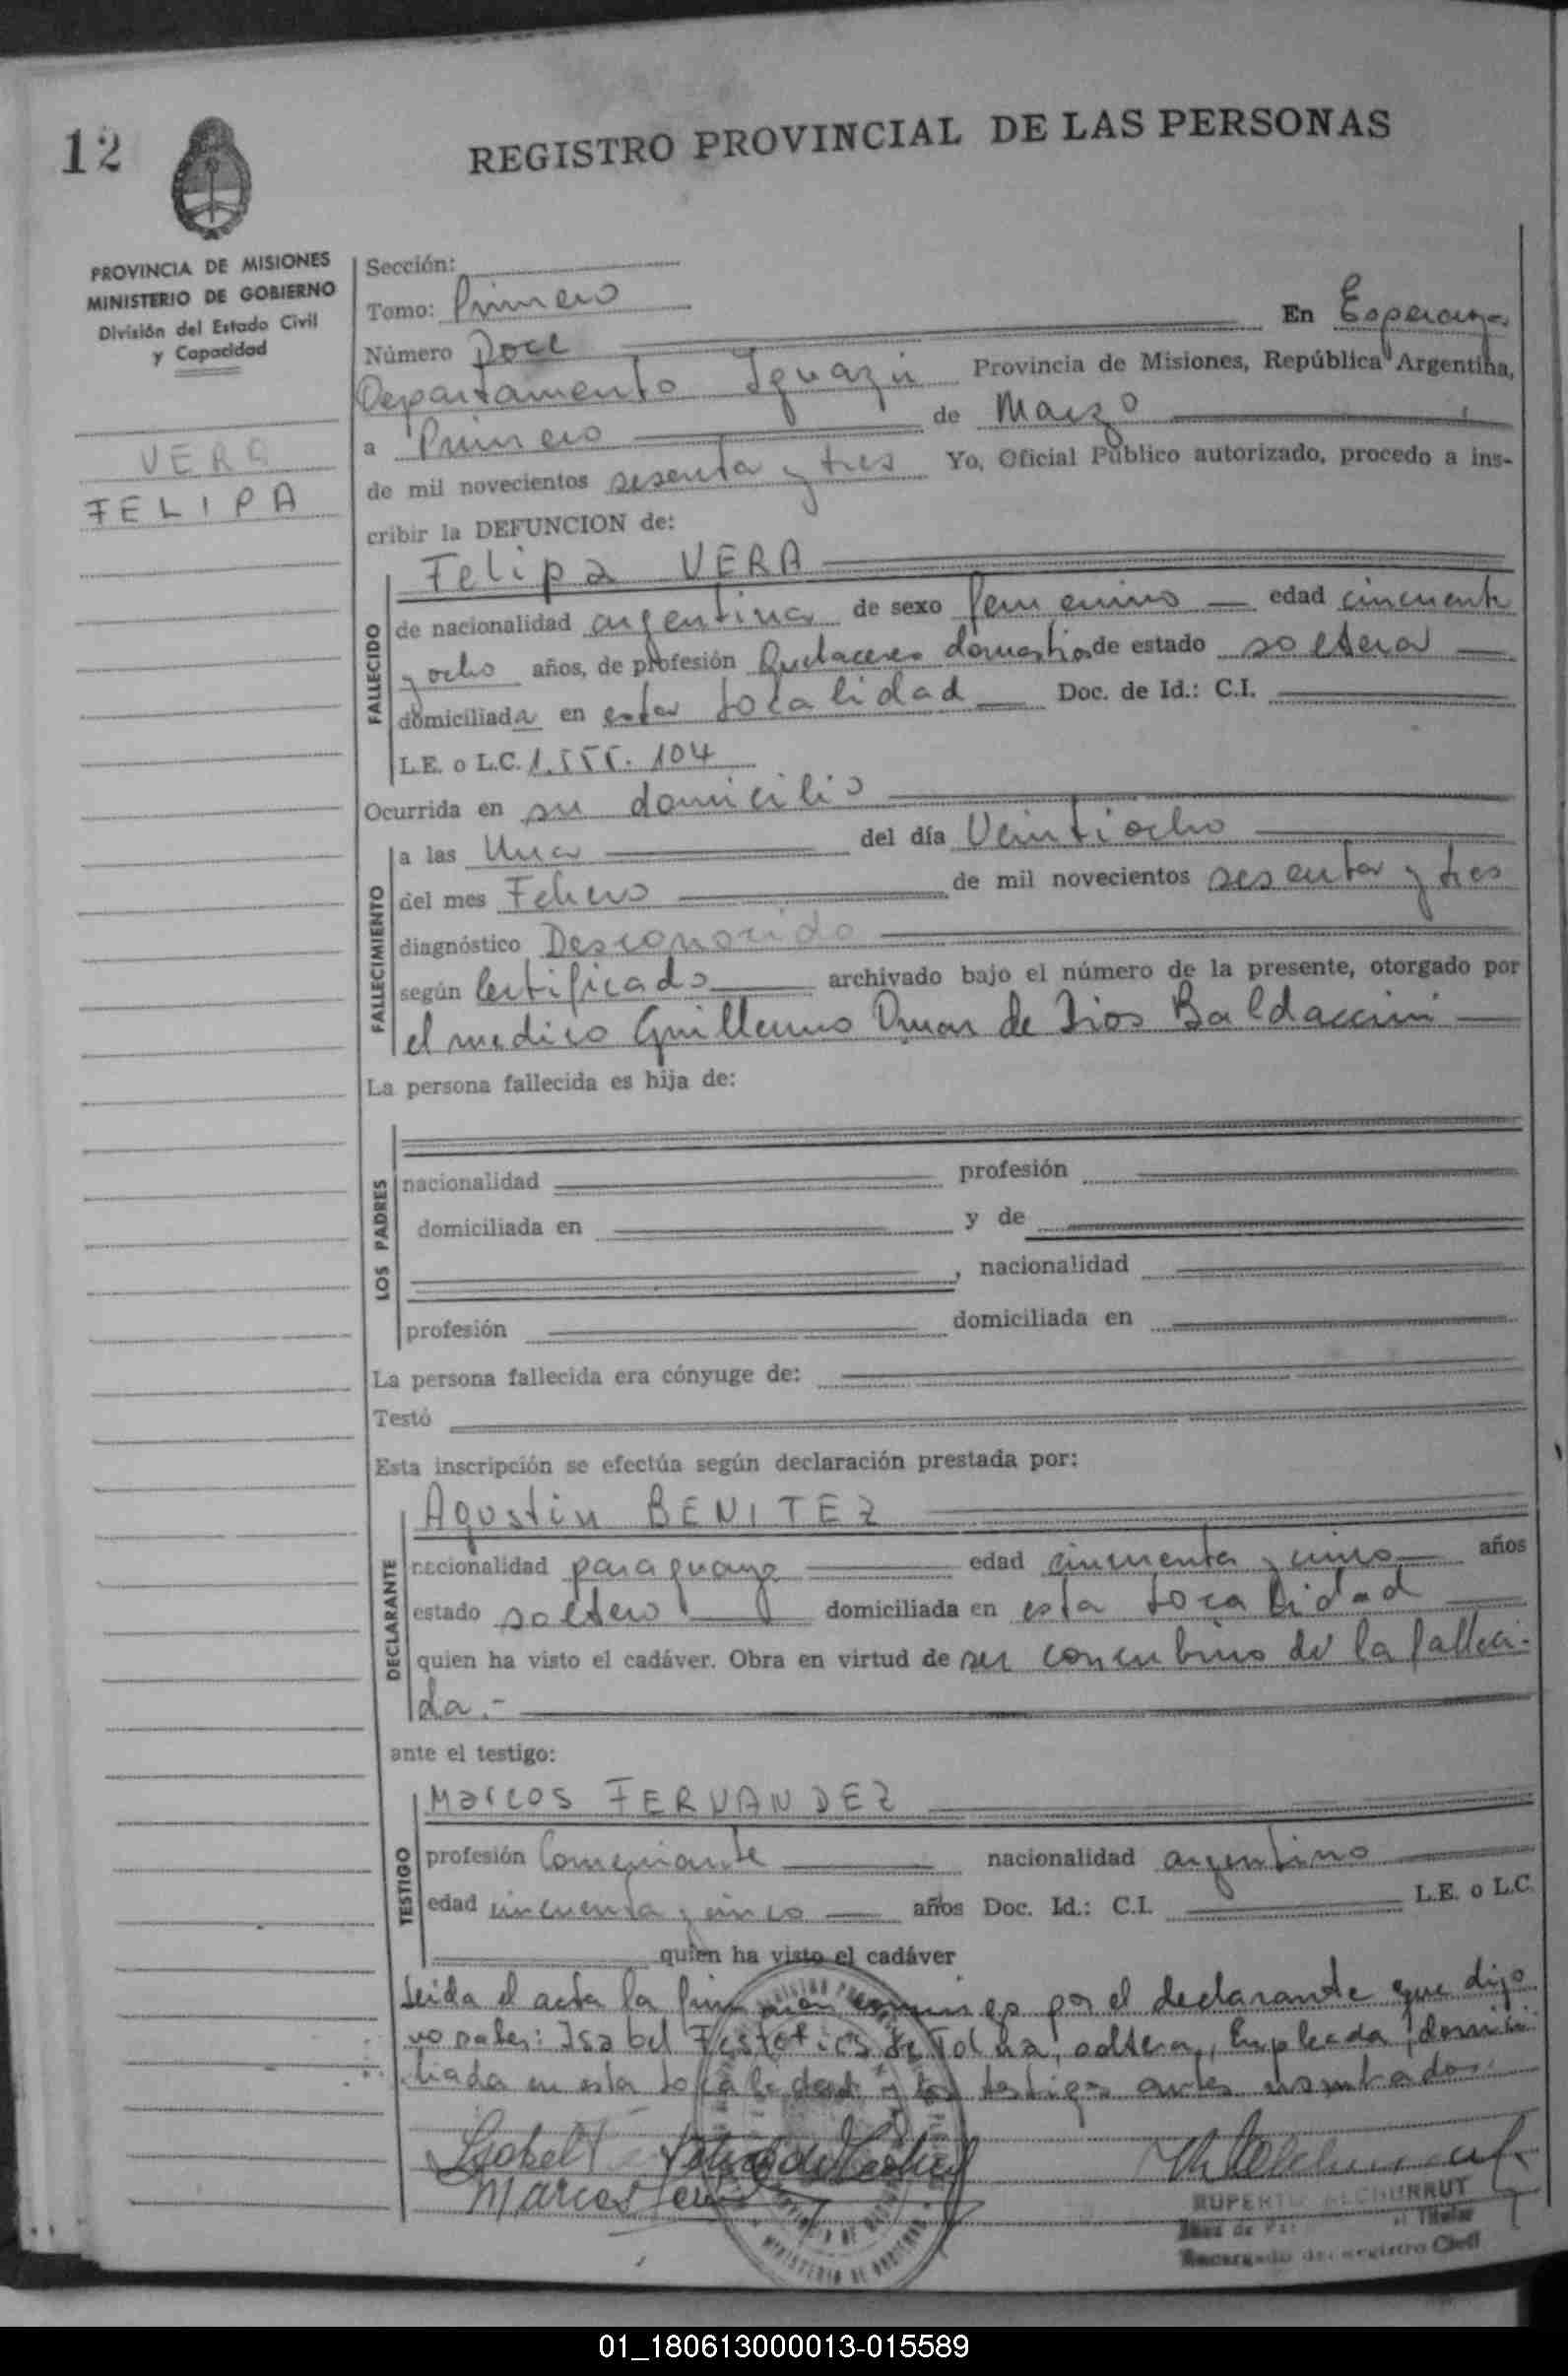 12
REGISTRO PROVINCIAL DE LAS PERSONAS
PROVINCIA DE MISIONES
MINISTERIO DE GOBIERNO
División del Estado Civil
y Capacidad
VERA
FELIPA
Sección:
Tomo: Primero
Número Doce En Esperanza
Departamento Iguazú Provincia de Misiones, República Argentina,
a Primero de Marzo
de mil novecientos sesenta y tres Yo, Oficial Público autorizado, procedo a ins-
cribir la DEFUNCION de:
Felipa VERA
FALLECIDO
de nacionalidad argentina de sexo femenino edad cincuenta
y ocho años, de profesión Quehaceres domesticos de estado soltera
domiciliada en esta localidad Doc. de Id.: C.I.
L.E. o L.C. 1.555.104
Ocurrida en su domicilio
FALLECIMIENTO
a las Una del día Veintiocho
del mes Febrero de mil novecientos sesenta y tres
diagnóstico Desconocido
según Certificado archivado bajo el número de la presente, otorgado por
el medico Guillermo Omar de Dios Baldaccini
La persona fallecida es hija de:
LOS PADRES
nacionalidad profesión
domiciliada en y de
, nacionalidad
profesión domiciliada en
La persona fallecida era cónyuge de:
Testó
Esta inscripción se efectúa según declaración prestada por:
DECLARANTE
Agustin BENITEZ
nacionalidad paraguaya edad cincuenta y cinco años
estado soltero domiciliada en esta localidad
quien ha visto el cadáver. Obra en virtud de ser concubino de la falleci-
da.-
ante el testigo:
TESTIGO
Marcos FERNANDEZ
profesión Comerciante nacionalidad argentino
edad cincuenta y cinco años Doc. Id.: C.I. L.E. o L.C.
quien ha visto el cadáver
Leida el acta la firman conmigo por el declarante que dijo
no saber: Isabel de soltera, Empleada, domici
liada en esta localidad y los testigos antes nombrados.
Isabel
Marcos
RUPERTO
Titular
Encargado del Registro Civil
01_180613000013-015589